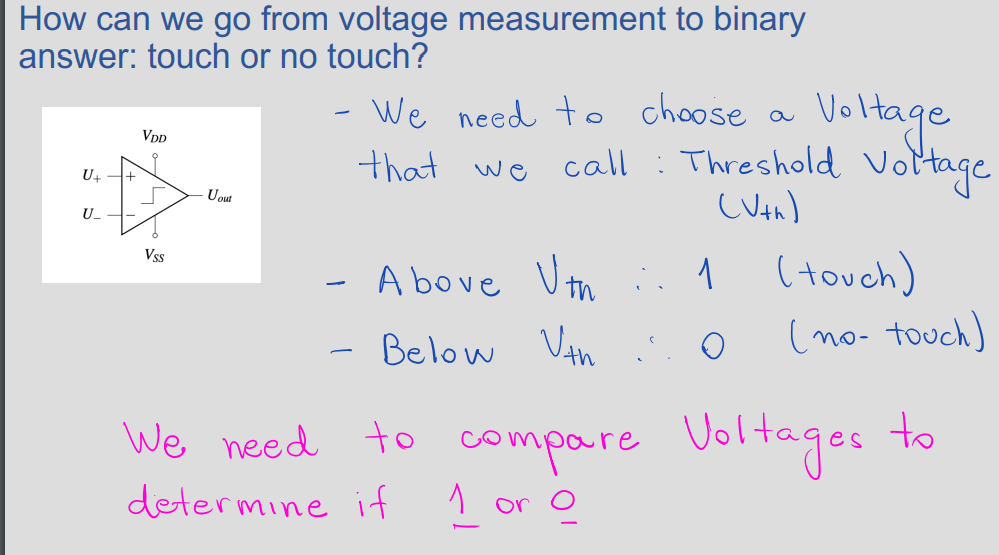 How can we go from voltage measurement to binary
answer: touch or no touch?
- We need to choose a Voltage
that we call : Threshold Voltage
(Vth)
- Above Vth ∴ 1 (touch)
- Below Vth ∴ 0 (no-touch)
VDD
U+ +
Uout
U− −
VSS
We need to compare Voltages to
determine if 1 or 0